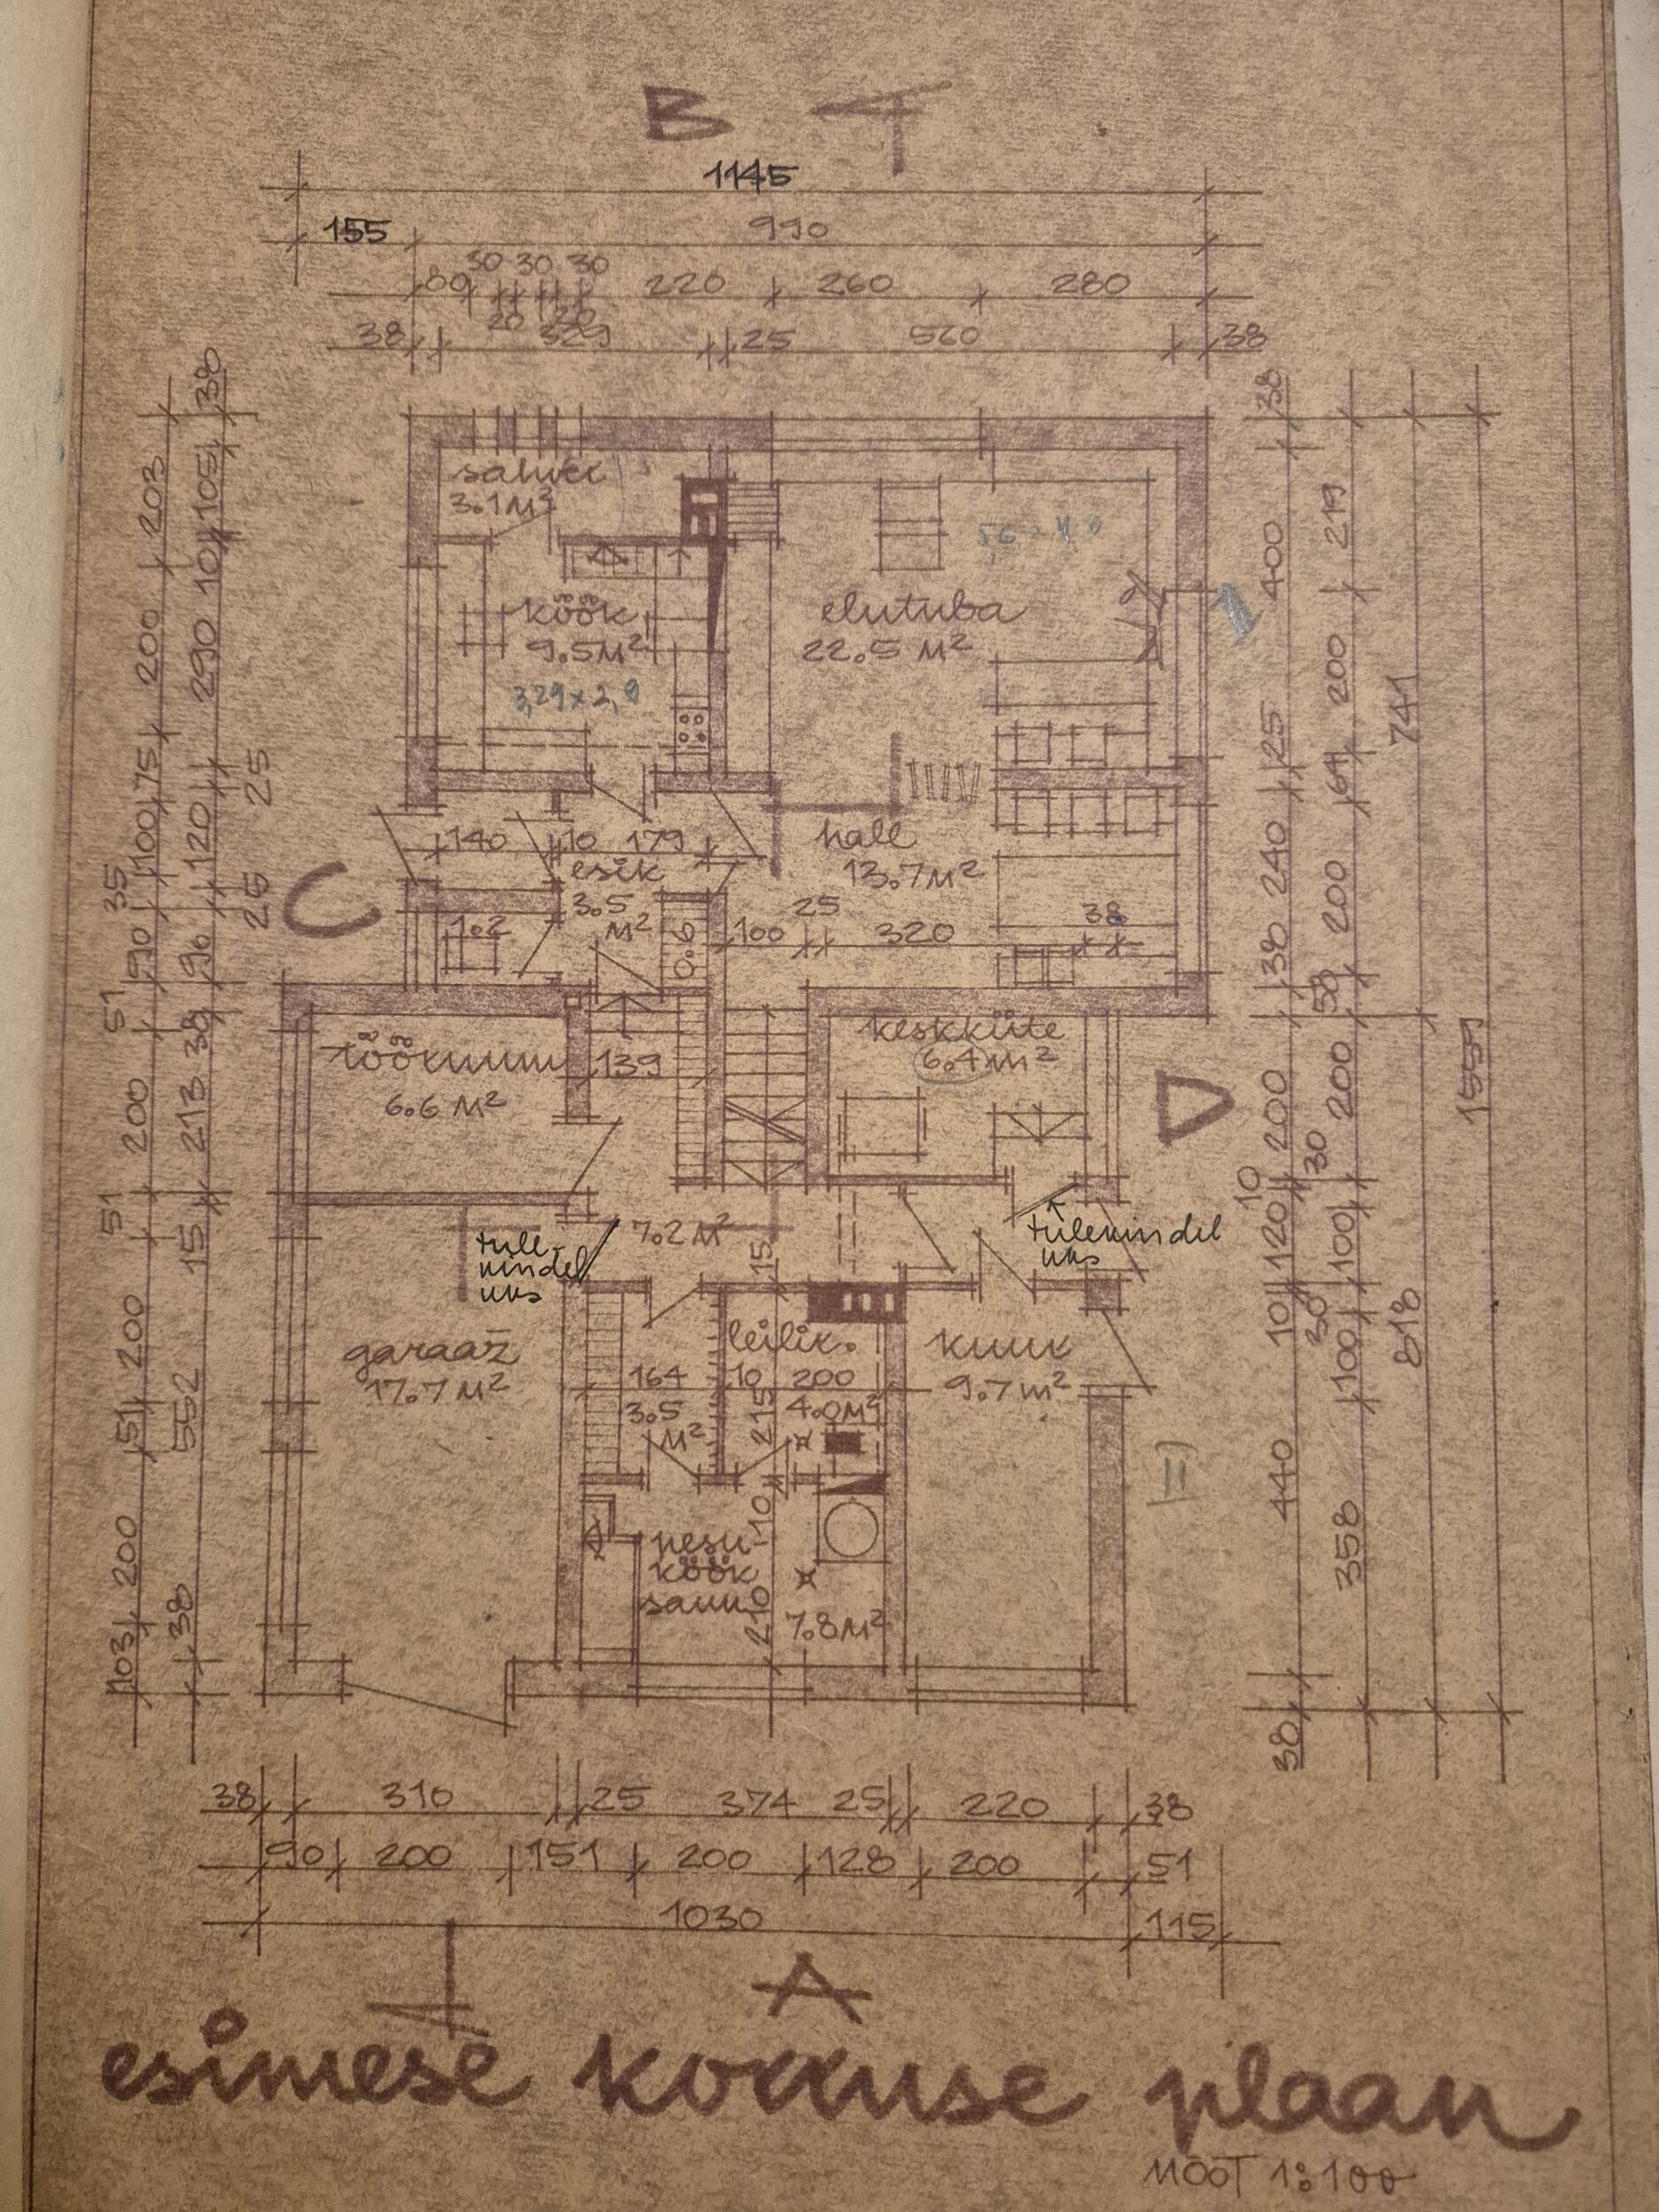 B
1145
155 990
80 30 20 30 20 30 220 260 280
38 329 25 560 38
sahver
3.1M²
köök
9.5M²
3,29 x 2,9
elutuba
22.5 M²
5,6 x 4,0
1
hall
13.7M²
140 10 179
esik
3.5
M²
1.2
0.6
100 25 320 38
C
töökuum
6.6 M²
139
keskküte
6.4m²
D
7.2 M²
tule-
kindel
uks
tulekindel
uks
15
garaaž
17.7 M²
164
3.5
M²
leilir.
10 200
4.0M²
215
kuur
9.7m²
II
pesu-
köök
saun
10
210
7.8M²
203
200
75
100
35
90
51
200
51
200
51
200
103
38
105
10
290
25
120
25
96
38
213
15
552
38
38
400
25
240
38
200
10
120
10
440
38
219
200
64
200
58
200
30
100
30
100
358
741
818
1559
38 310 25 374 25 220 38
90 200 151 200 128 200 51
1030 115
A
esimese korruse plaan
MÕÕT 1:100